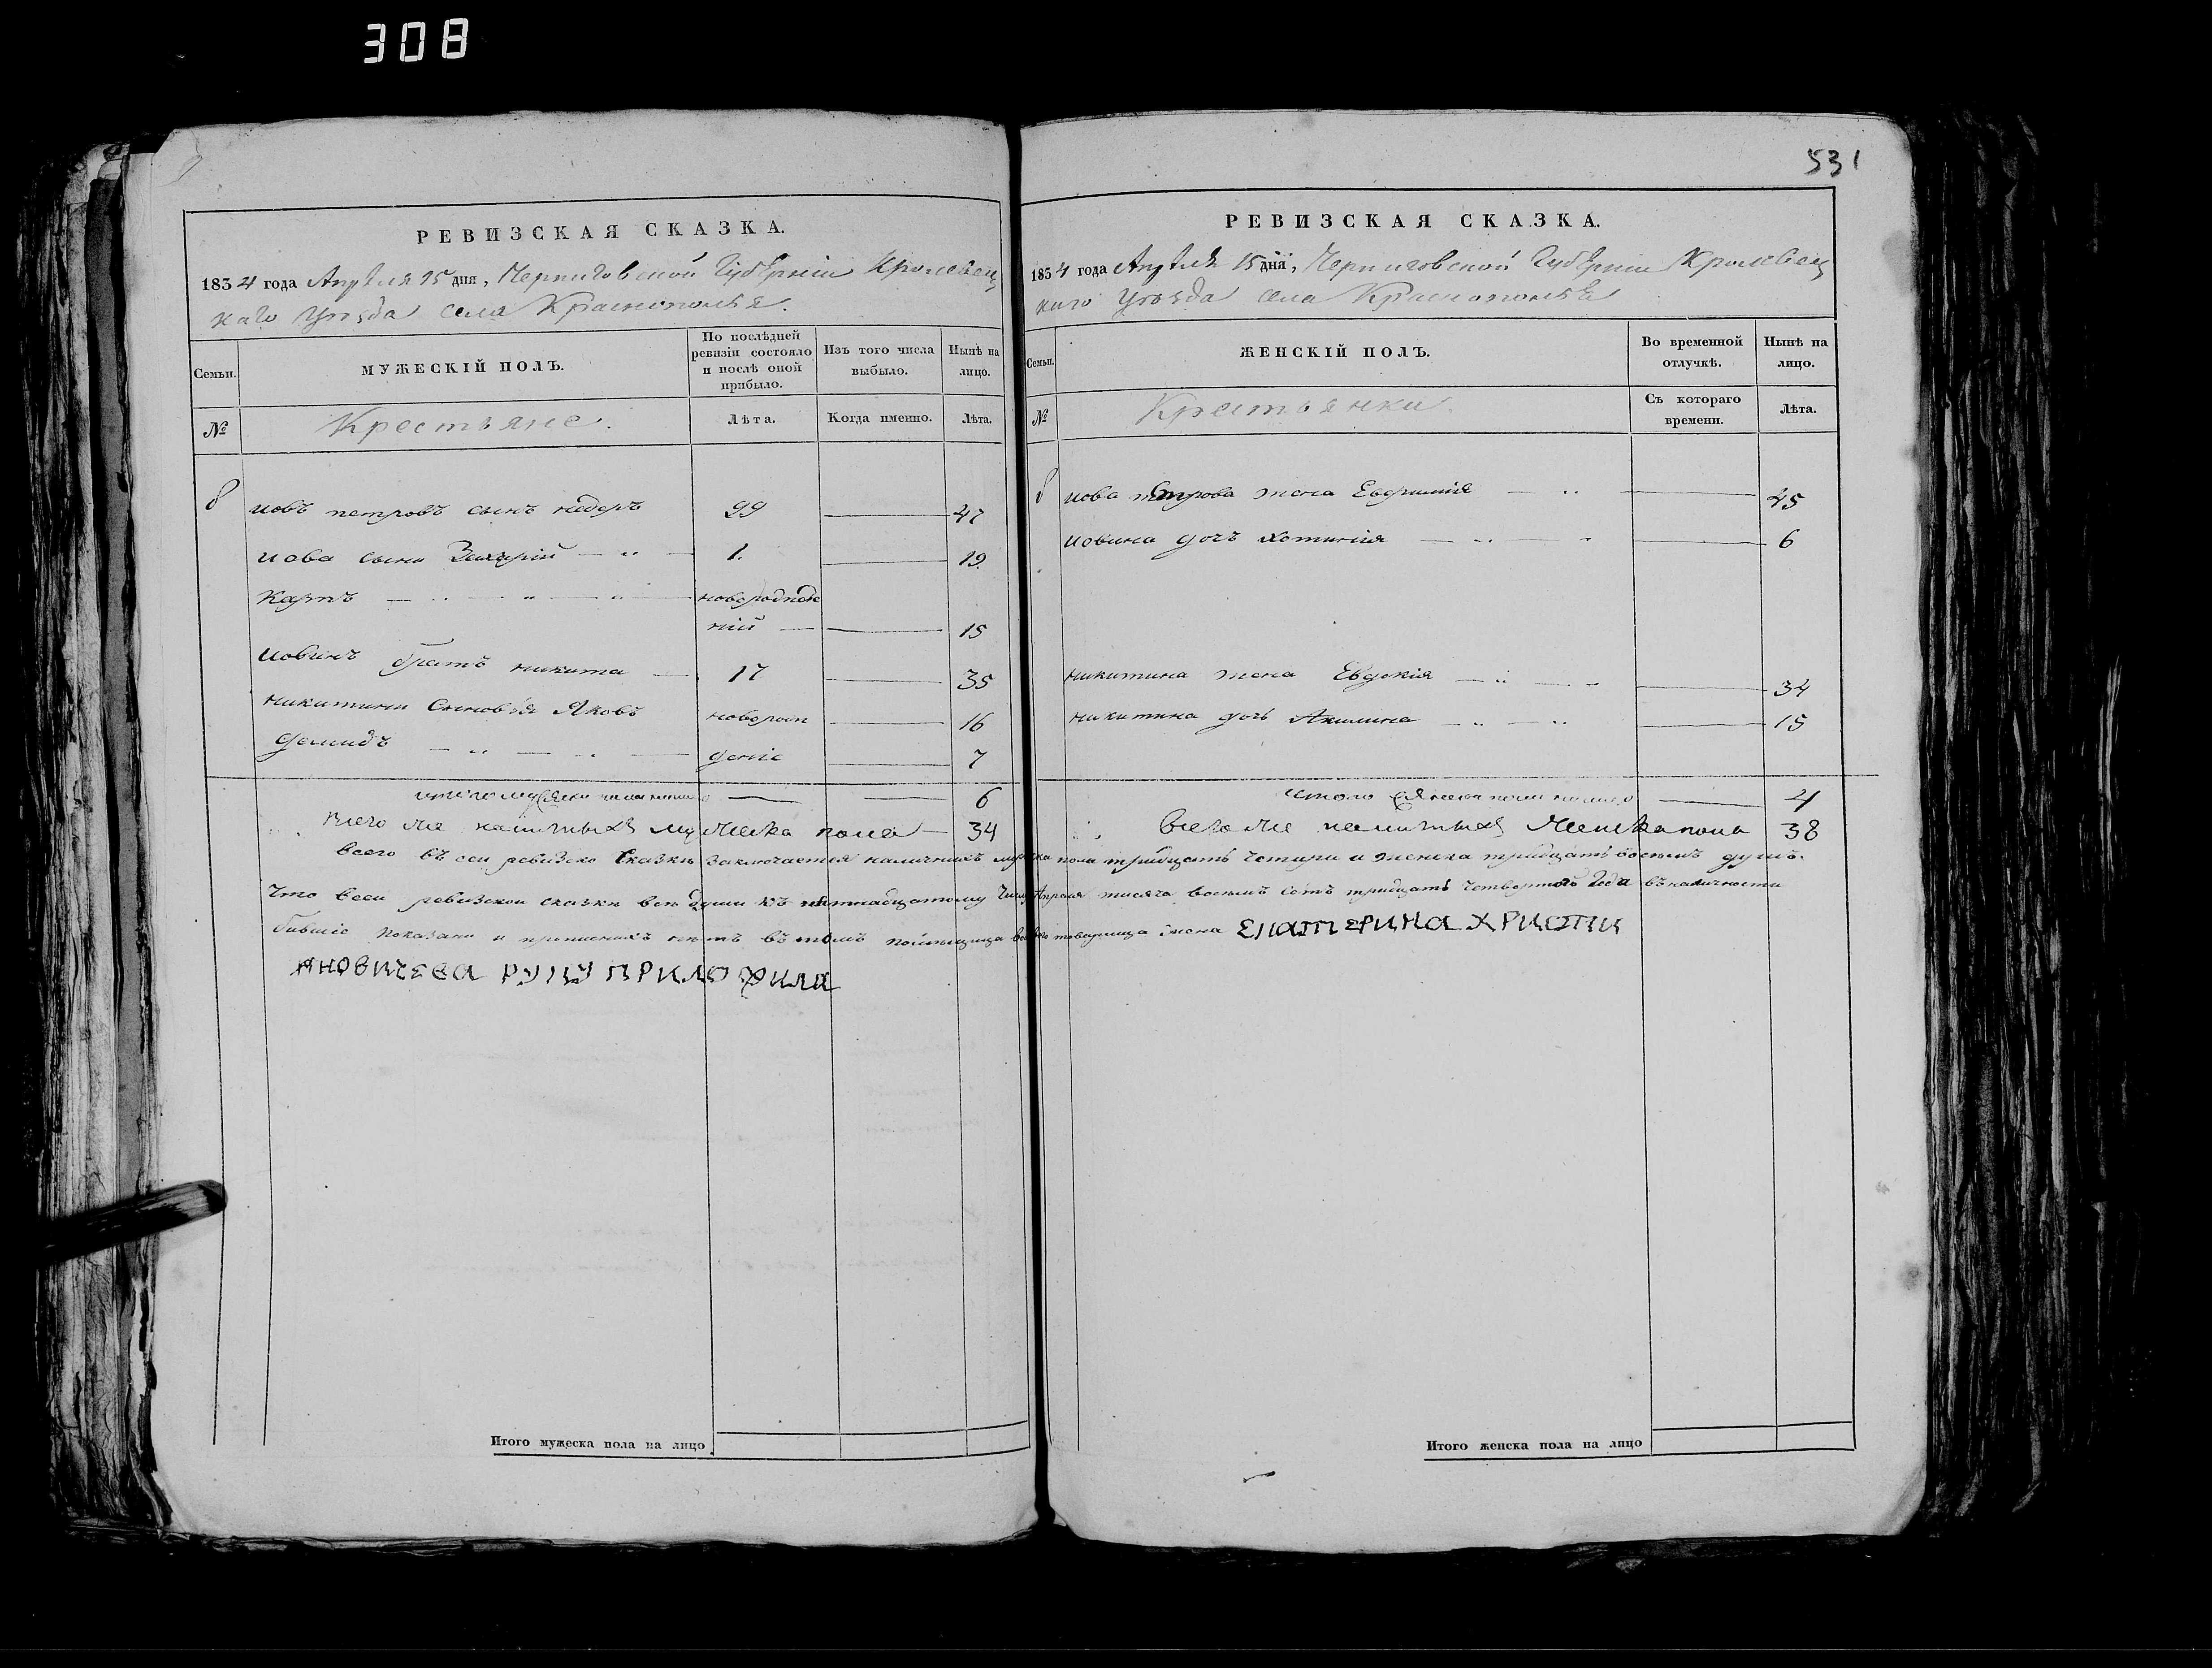 308
531
РЕВИЗСКАЯ СКАЗКА.
1834 года Апрѣля 15 дня, Черниговской Губѣрніи Кролевец
каго Уѣзда села Краснополья.
Семьи.
МУЖЕСКІЙ ПОЛЪ.
По послѣдней ревизіи состояло и послѣ оной прибыло.
Изъ того числа выбыло.
Нынѣ на лицо.
№
Крестьяне.
Лѣта.
Когда именно.
Лѣта.
8 иовъ петровъ сынъ 29 47
иова сынъ Захарій 1. 19.
Карпъ новорожде
ній 15
иовинъ братъ никита 17 35
никитини Сыновья Яковъ новорож 16
демидъ деніе 7
итого мужеска пола налицо 6
всего же наличныхъ мужеска пола 34
РЕВИЗСКАЯ СКАЗКА.
1834 года Апрѣля 15 дня, Черниговской Губѣрніи Кролевец
каго Уѣзда села Краснополья
Семьи.
ЖЕНСКІЙ ПОЛЪ.
Во временной отлучкѣ.
Нынѣ на лицо.
№
Крестьянки.
Съ котораго времени.
Лѣта.
8 иова петрова жена Евфимія 45
иовина дочъ хотинія 6
никитина жена Евдокія 34
никитина дочь Акилина 15
итого женска пола налицо 4
всего же наличныхъ женска пола 38
всего въ сей ревизско сказки заключается наличнихъ мужска пола тридцать четири и женска тридцать восемъ душъ.
Что всеи ревизской сказки все души къ пятнадцатому числу Апреля тисяча восемъ сотъ тридцать четвертого Года въ наличности
бывшіе показани и прописнихъ нетъ въ томъ помещица товарища жена ЕКАТЕРИНА ХРИСТИ
АНОВИЧЕВА РУКУ ПРИЛОЖИЛА
Итого мужеска пола на лицо
Итого женска пола на лицо